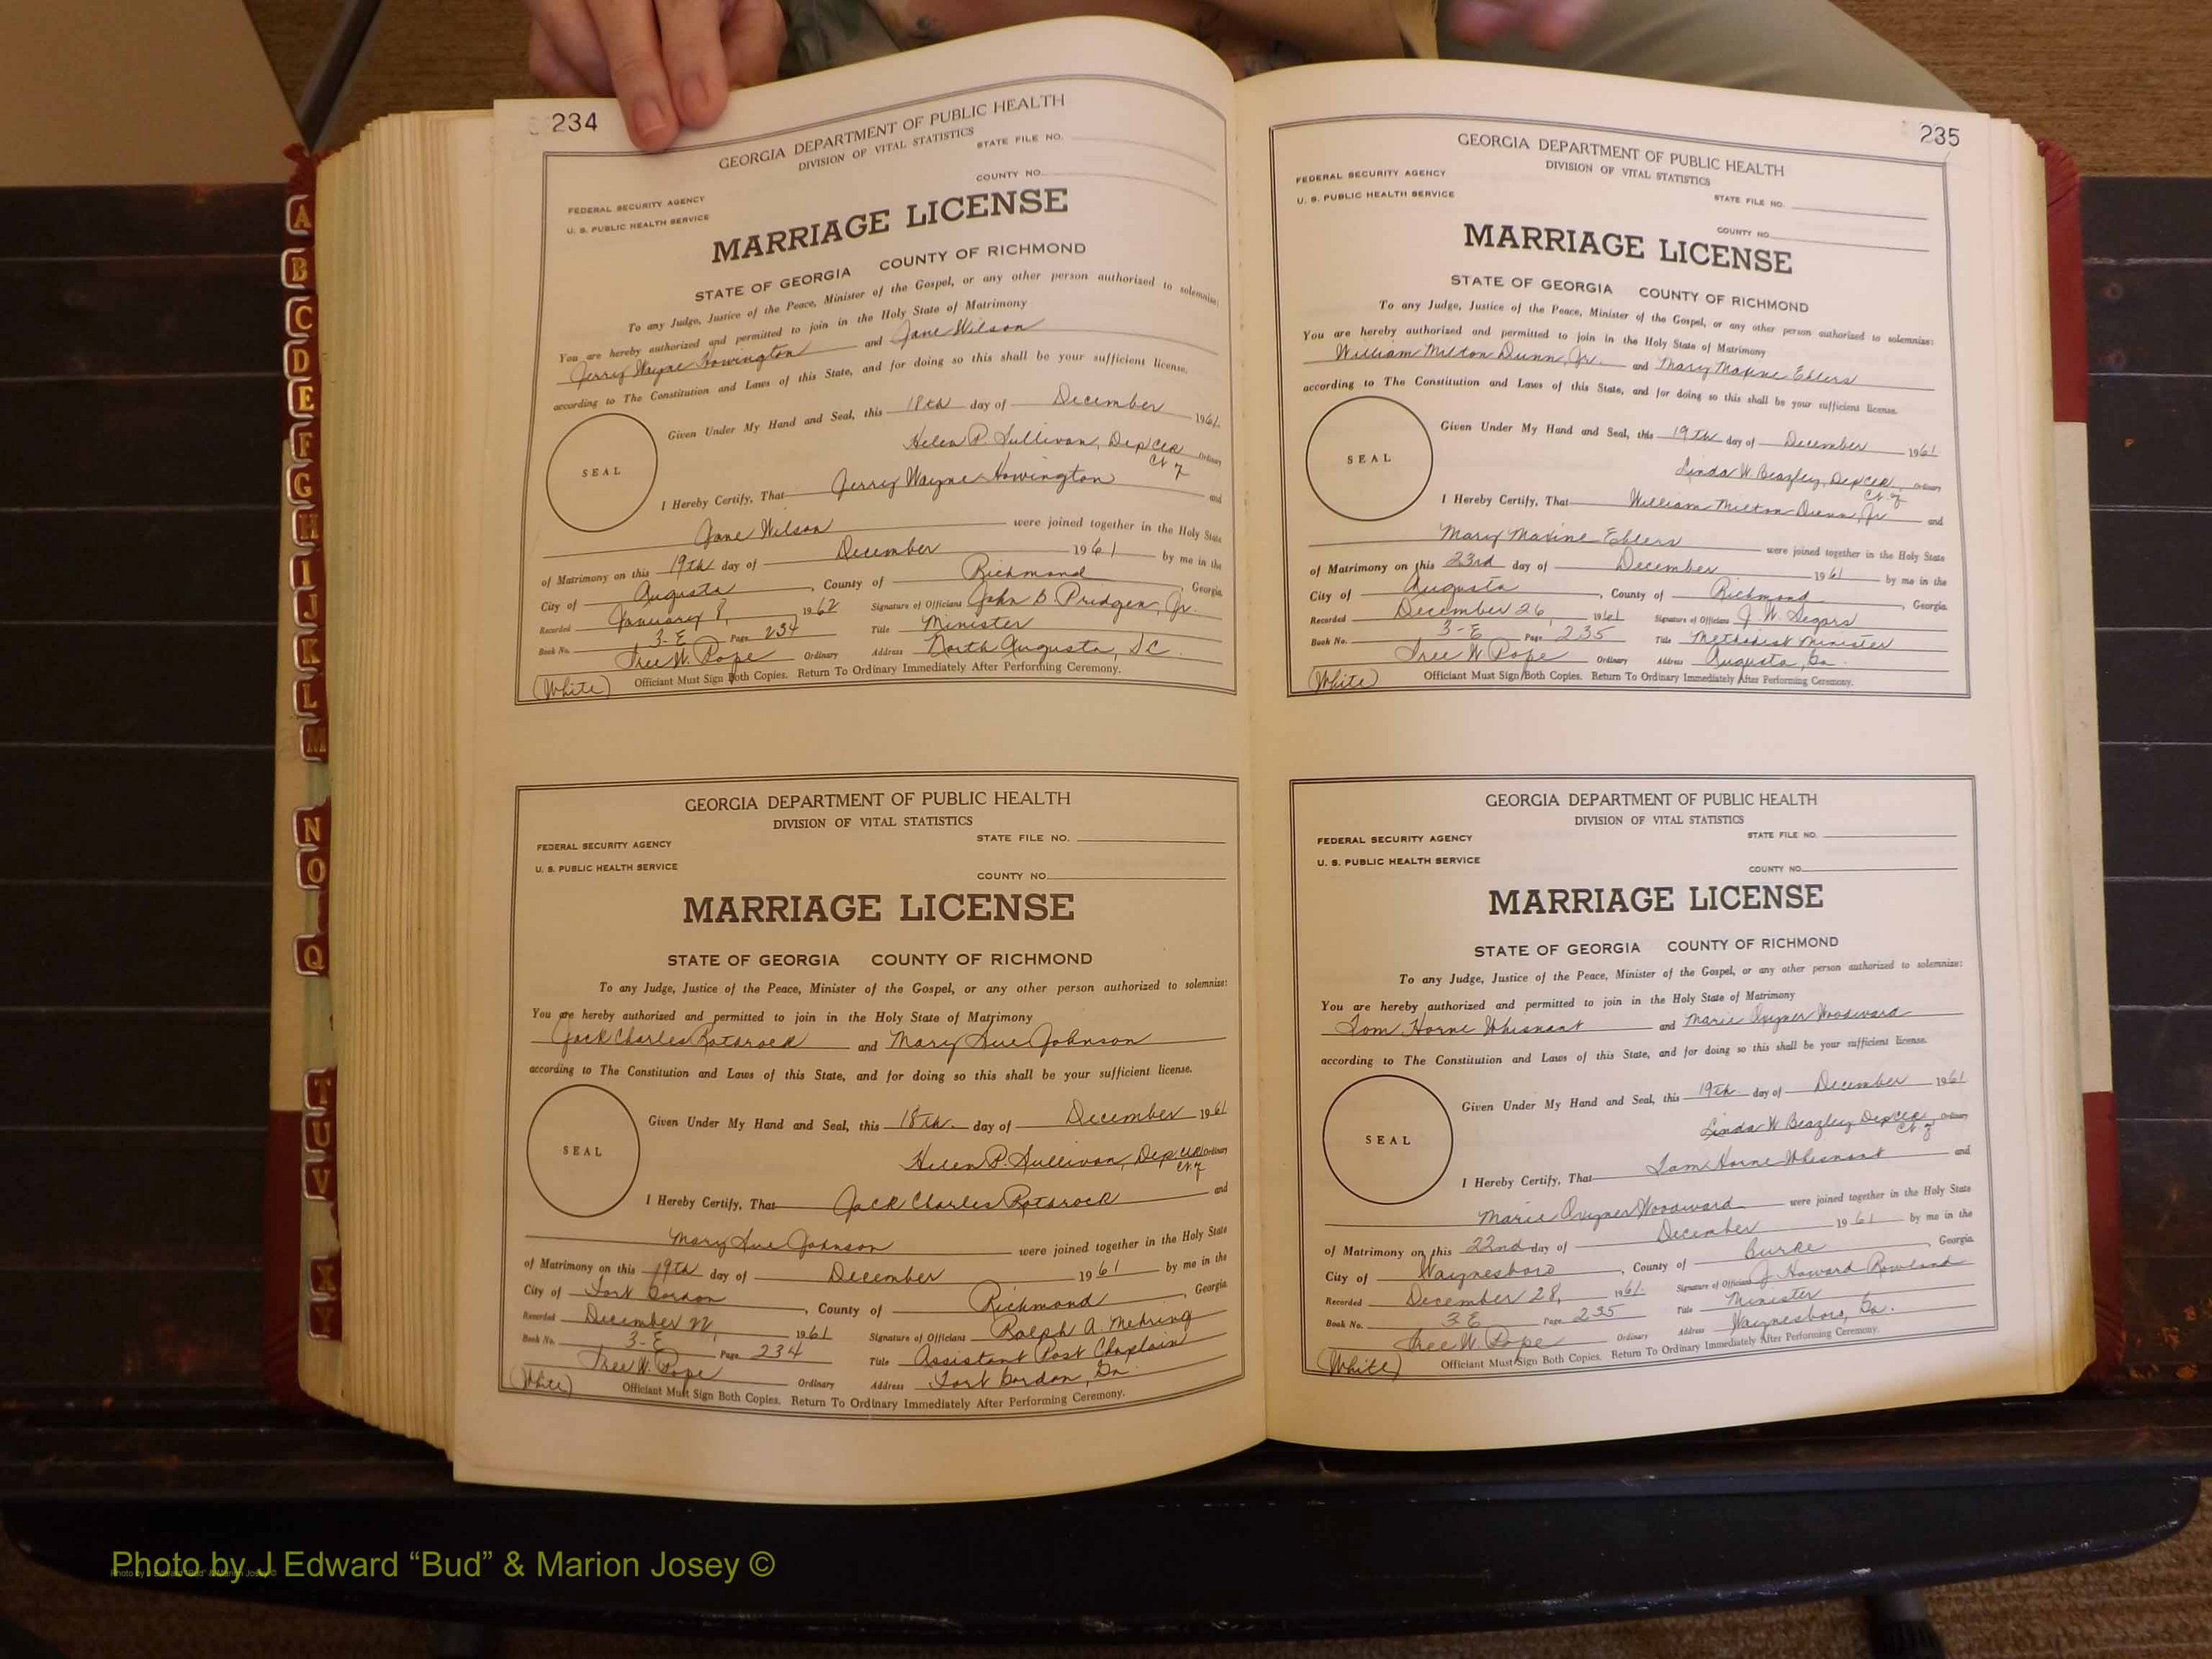 234
GEORGIA DEPARTMENT OF PUBLIC HEALTH
DIVISION OF VITAL STATISTICS
STATE FILE NO.
COUNTY NO.
FEDERAL SECURITY AGENCY
U. S. PUBLIC HEALTH SERVICE
MARRIAGE LICENSE
STATE OF GEORGIA COUNTY OF RICHMOND
To any Judge, Justice of the Peace, Minister of the Gospel, or any other person authorized to solemnize:
You are hereby authorized and permitted to join in the Holy State of Matrimony
Jerry Wayne Howington and Jane Wilson
according to The Constitution and Laws of this State, and for doing so this shall be your sufficient license.
Given Under My Hand and Seal, this 18th day of December 1961.
Helen P. Sullivan, Dep Clk Ordinary
SEAL
I Hereby Certify, That Jerry Wayne Howington and
Jane Wilson were joined together in the Holy State
of Matrimony on this 19th day of December 1961 by me in the
City of Augusta, County of Richmond, Georgia
Recorded January 8, 1962 Signature of Officiant John B. Pridgen, Jr.
Book No. 3-E Page 234 Title Minister
Tree W. Pope Ordinary Address North Augusta, S.C.
(White) Officiant Must Sign Both Copies. Return To Ordinary Immediately After Performing Ceremony.
GEORGIA DEPARTMENT OF PUBLIC HEALTH
DIVISION OF VITAL STATISTICS
STATE FILE NO.
FEDERAL SECURITY AGENCY
U. S. PUBLIC HEALTH SERVICE
COUNTY NO.
MARRIAGE LICENSE
STATE OF GEORGIA COUNTY OF RICHMOND
To any Judge, Justice of the Peace, Minister of the Gospel, or any other person authorized to solemnize:
You are hereby authorized and permitted to join in the Holy State of Matrimony
Jack Charles Rothrock and Mary Sue Johnson
according to The Constitution and Laws of this State, and for doing so this shall be your sufficient license.
Given Under My Hand and Seal, this 18th day of December 1961
Helen P. Sullivan, Dep Clk Ordinary
SEAL
I Hereby Certify, That Jack Charles Rothrock and
Mary Sue Johnson were joined together in the Holy State
of Matrimony on this 19th day of December 1961 by me in the
City of Fort Gordon, County of Richmond, Georgia
Recorded December 22, 1961 Signature of Officiant Ralph A. Mehring
Book No. 3-E Page 234 Title Assistant Post Chaplain
Tree W. Pope Ordinary Address Fort Gordon, Ga.
(White) Officiant Must Sign Both Copies. Return To Ordinary Immediately After Performing Ceremony.
235
GEORGIA DEPARTMENT OF PUBLIC HEALTH
DIVISION OF VITAL STATISTICS
FEDERAL SECURITY AGENCY
U. S. PUBLIC HEALTH SERVICE
STATE FILE NO.
COUNTY NO.
MARRIAGE LICENSE
STATE OF GEORGIA COUNTY OF RICHMOND
To any Judge, Justice of the Peace, Minister of the Gospel, or any other person authorized to solemnize:
You are hereby authorized and permitted to join in the Holy State of Matrimony
William Milton Dunn, Jr. and Mary Maxine Ehlers
according to The Constitution and Laws of this State, and for doing so this shall be your sufficient license.
Given Under My Hand and Seal, this 19th day of December 1961
Linda W. Beazley, Dep Clk Ordinary
SEAL
I Hereby Certify, That William Milton Dunn, Jr. and
Mary Maxine Ehlers were joined together in the Holy State
of Matrimony on this 23rd day of December 1961 by me in the
City of Augusta, County of Richmond, Georgia
Recorded December 26, 1961 Signature of Officiant J. W. Segars
Book No. 3-E Page 235 Title Methodist Minister
Tree W. Pope Ordinary Address Augusta, Ga.
(White) Officiant Must Sign Both Copies. Return To Ordinary Immediately After Performing Ceremony.
GEORGIA DEPARTMENT OF PUBLIC HEALTH
DIVISION OF VITAL STATISTICS
STATE FILE NO.
FEDERAL SECURITY AGENCY
U. S. PUBLIC HEALTH SERVICE
COUNTY NO.
MARRIAGE LICENSE
STATE OF GEORGIA COUNTY OF RICHMOND
To any Judge, Justice of the Peace, Minister of the Gospel, or any other person authorized to solemnize:
You are hereby authorized and permitted to join in the Holy State of Matrimony
Tom Horne Whisnant and Marie Woodward
according to The Constitution and Laws of this State, and for doing so this shall be your sufficient license.
Given Under My Hand and Seal, this 19th day of December 1961
Linda W. Beazley, Dep Clk Ordinary
SEAL
I Hereby Certify, That Tom Horne Whisnant and
Marie Woodward were joined together in the Holy State
of Matrimony on this 22nd day of December 1961 by me in the
City of Waynesboro, County of Burke, Georgia
Recorded December 28, 1961. Signature of Officiant J. Howard Rowland
Book No. 3 E Page 235 Title Minister
Tree W. Pope Ordinary Address Waynesboro, Ga.
(White) Officiant Must Sign Both Copies. Return To Ordinary Immediately After Performing Ceremony.
A
B
C
D
E
F
G
H
I
J
K
L
M
N
O
Q
T
U
V
X
Y
Photo by J Edward “Bud” & Marion Josey ©
Photo by J Edward "Bud" & Marion Josey ©